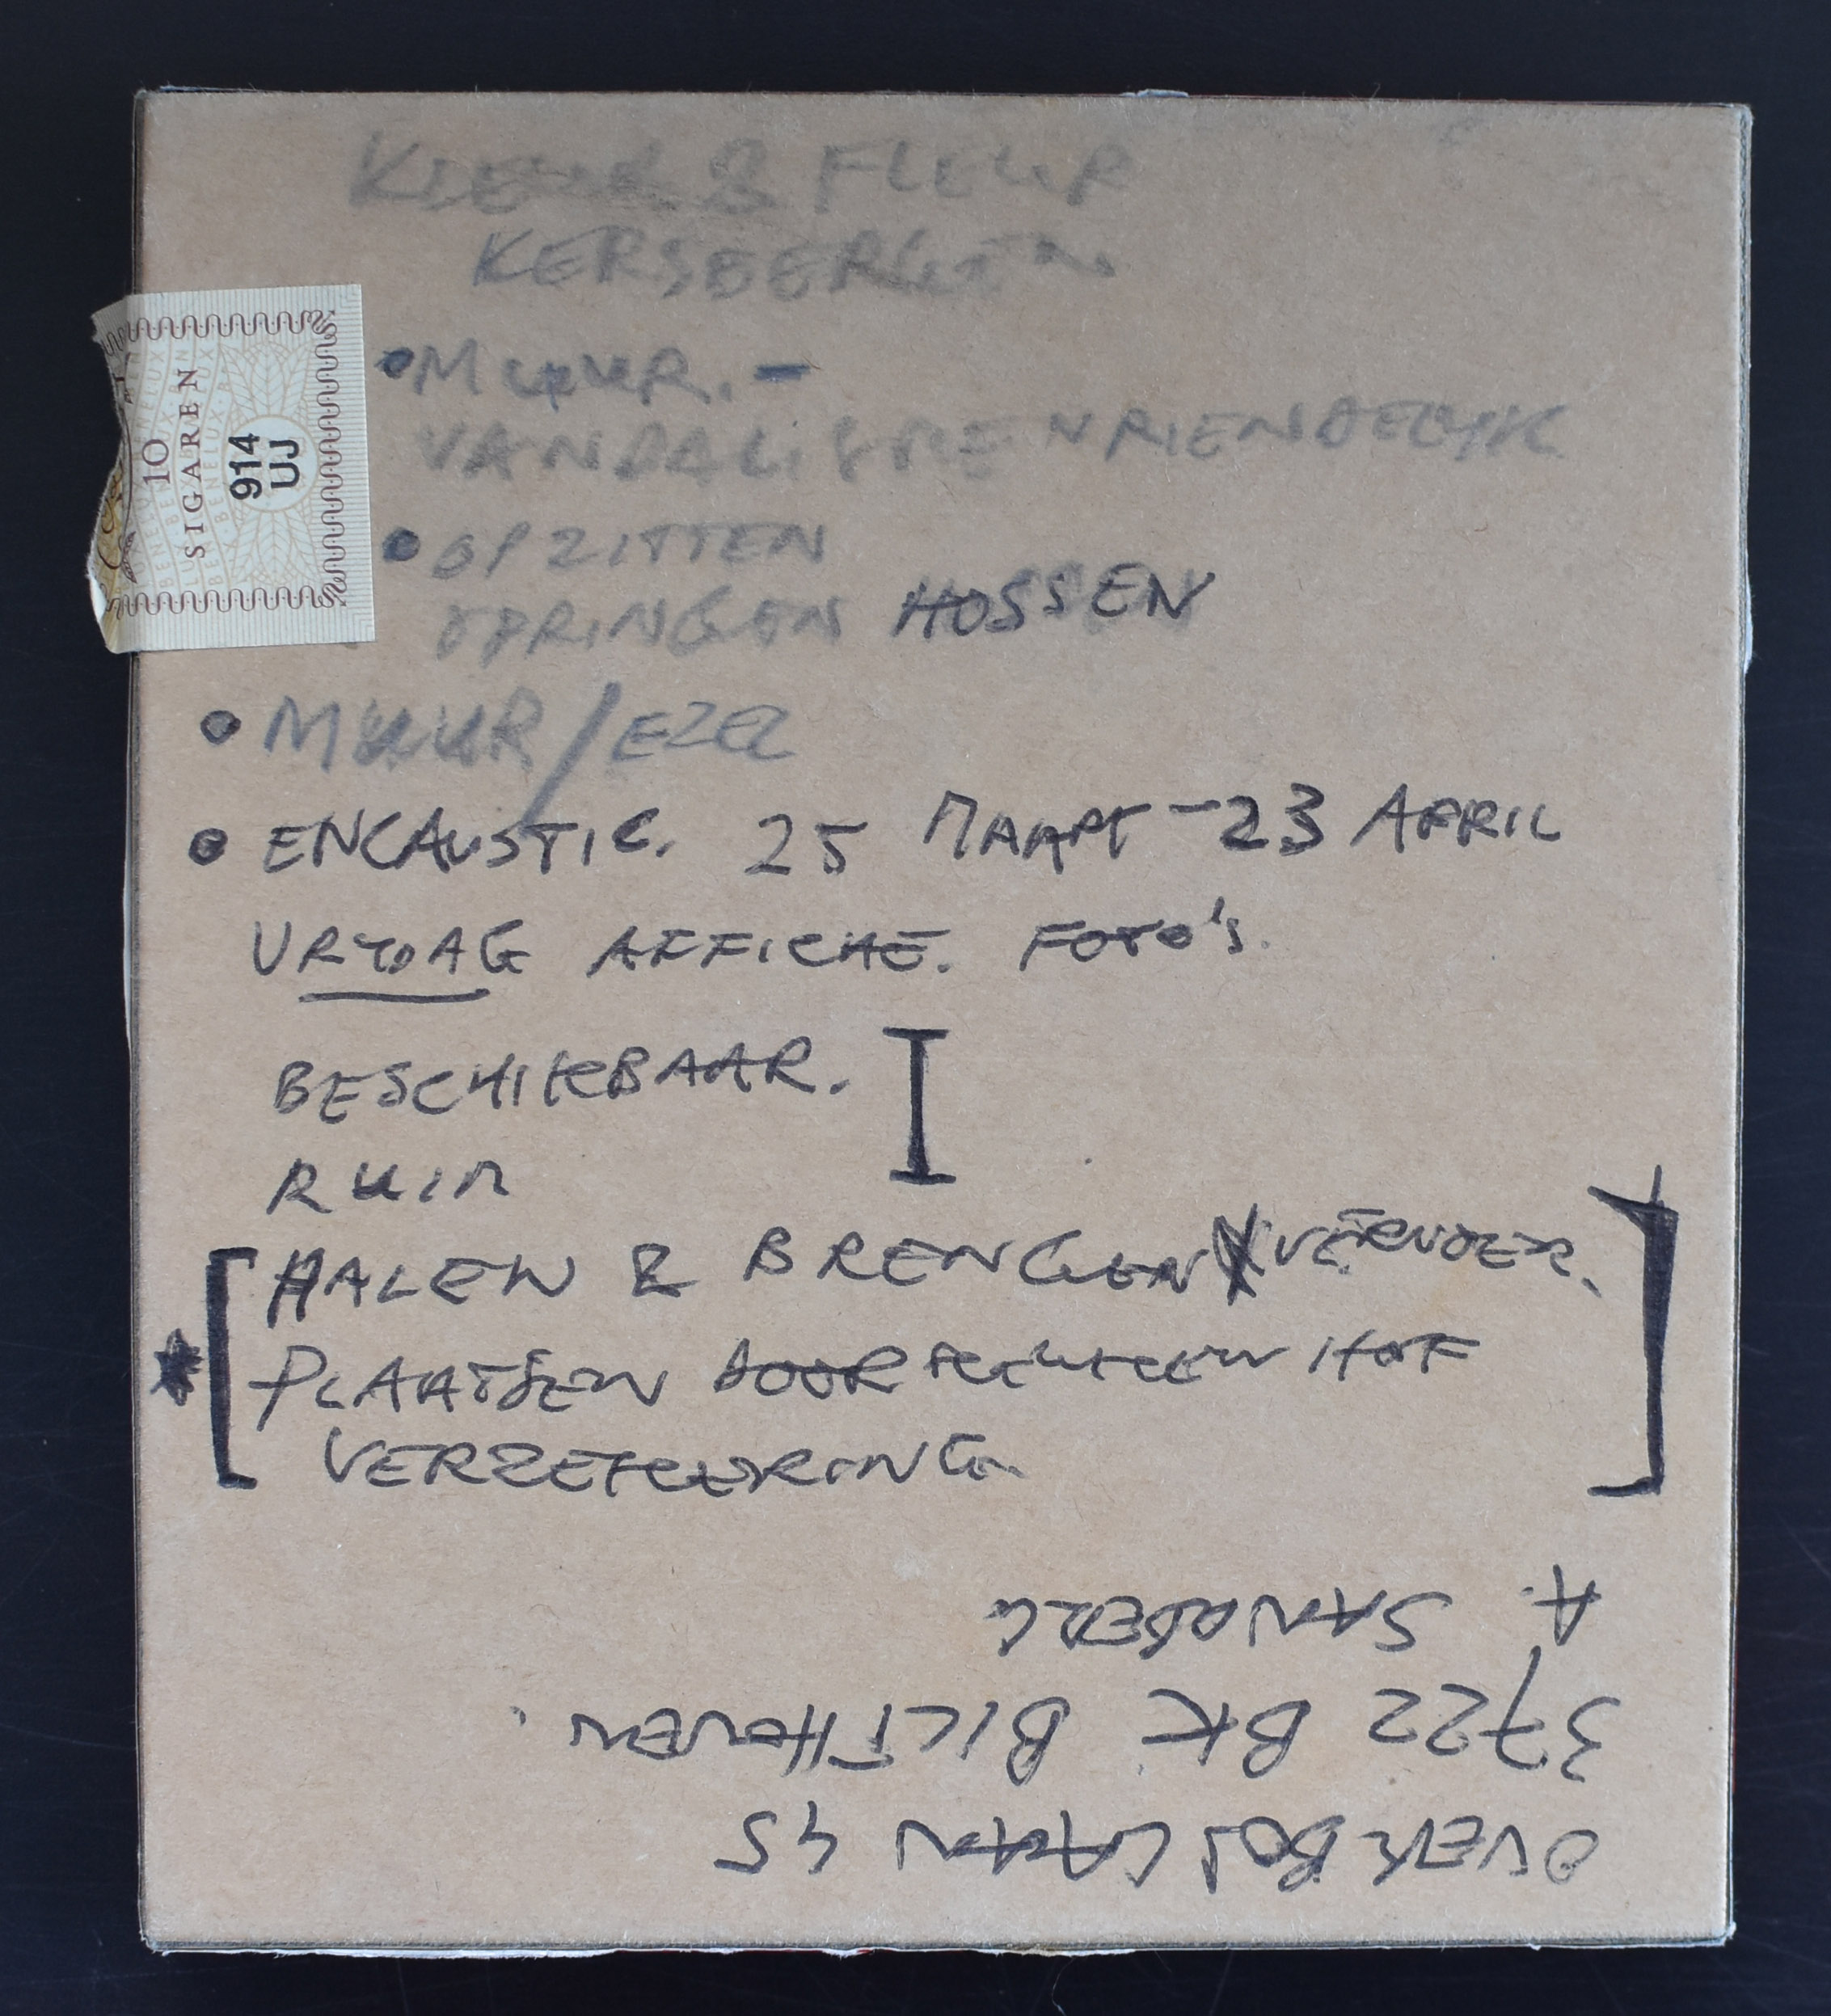 & FLEUR
KERSBERGEN
• MUUR. -
VANDALISME VRIENDELYK
• OPZITTEN
SPRINGEN HOSSEN
• MUUR / EZEL
• ENCAUSTIC. 25 MAART - 23 APRIL
VRYDAG AFFICHE. FOTO'S.
BESCHIKBAAR.
RUIM
HALEN & BRENGEN VERVOER.
* PLAATSEN DOOR HOF
VERZEKERING
10
SIGAREN
914
UJ
OVERBOSLAAN 45
3722 BK BILTHOVEN.
A. SANDBERG